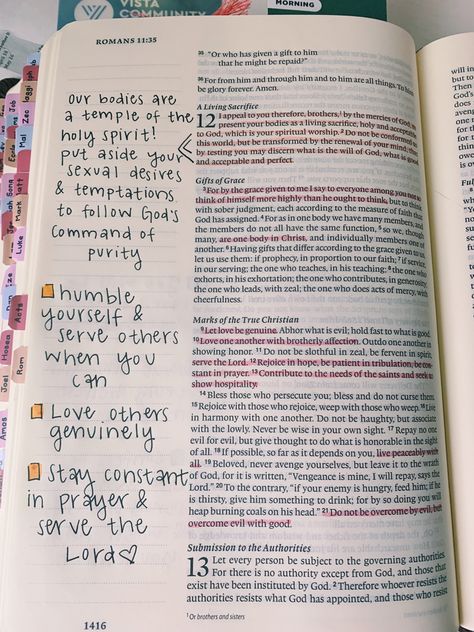 VISTA
COMMUNITY
MORNING
ROMANS 11:35
our bodies are
a temple of the
holy spirit!
put aside your
sexual desires
& temptations
to follow God's
command of
purity
humble
yourself &
serve others
when you
can
Love others
genuinely
stay constant
in prayer &
serve the
Lord♡
1416
35 "Or who has given a gift to him
that he might be repaid?"
36 For from him and through him and to him are all things. To him
be glory forever. Amen.
A Living Sacrifice
12 I appeal to you therefore, brothers,¹ by the mercies of God, to
present your bodies as a living sacrifice, holy and acceptable
to God, which is your spiritual worship. 2 Do not be conformed to
this world, but be transformed by the renewal of your mind, that
by testing you may discern what is the will of God, what is good
and acceptable and perfect.
Gifts of Grace
3 For by the grace given to me I say to everyone among you not to
think of himself more highly than he ought to think, but to think
with sober judgment, each according to the measure of faith that
God has assigned. 4 For as in one body we have many members, and
the members do not all have the same function, 5 so we, though
many, are one body in Christ, and individually members one of
another. 6 Having gifts that differ according to the grace given to us,
let us use them: if prophecy, in proportion to our faith; 7 if service,
in our serving; the one who teaches, in his teaching; 8 the one who
exhorts, in his exhortation; the one who contributes, in generosity;
the one who leads, with zeal; the one who does acts of mercy, with
cheerfulness.
Marks of the True Christian
9 Let love be genuine. Abhor what is evil; hold fast to what is good.
10 Love one another with brotherly affection. Outdo one another in
showing honor. 11 Do not be slothful in zeal, be fervent in spirit,
serve the Lord. 12 Rejoice in hope, be patient in tribulation, be con-
stant in prayer. 13 Contribute to the needs of the saints and seek to
show hospitality.
14 Bless those who persecute you; bless and do not curse them.
15 Rejoice with those who rejoice, weep with those who weep. 16 Live
in harmony with one another. Do not be haughty, but associate
with the lowly. Never be wise in your own sight. 17 Repay no one
evil for evil, but give thought to do what is honorable in the sight
of all. 18 If possible, so far as it depends on you, live peaceably with
all. 19 Beloved, never avenge yourselves, but leave it to the wrath
of God, for it is written, "Vengeance is mine, I will repay, says the
Lord." 20 To the contrary, "if your enemy is hungry, feed him; if he
is thirsty, give him something to drink; for by so doing you will
heap burning coals on his head." 21 Do not be overcome by evil, but
overcome evil with good.
Submission to the Authorities
13 Let every person be subject to the governing authorities.
For there is no authority except from God, and those that
exist have been instituted by God. 2 Therefore whoever resists the
authorities resists what God has appointed, and those who resist
¹ Or brothers and sisters
Job
Mal
Zeo
Jonah
Mark
Matt
Luke
Acts
Hosea
Joel
Rom
Amos